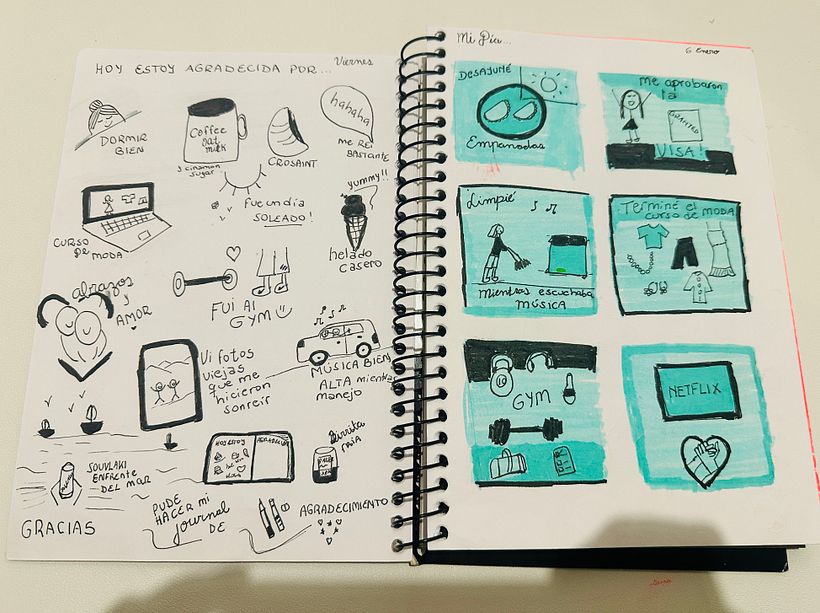 HOY ESTOY AGRADECIDA POR... Viernes
DORMIR
BIEN
Coffee
oat
milk
y cinamon
sugar
CROSAINT
hahaha
me REI
BASTANTE
CURSO
DE MODA
Fue un día
SOLEADO!
yummy!!
helado
casero
abrazos
y
AMOR
FUI Al
GYM
Vi fotos
viejas
que me
hicieron
sonreir
MÚSICA BIEN
ALTA mientras
manejo
SOUVLAKI
ENFRENTE
DEL MAR
HOY ESTOY
AGRADECIDA
birrita
FRIA
GRACIAS
PUDE
HACER mi
journal
DE
AGRADECIMIENTO
Mi Día...
6 Enero
DESAYUNÉ
Empanadas
me aprobaron
la
GRANTED
VISA!
Limpié
mientras escuchaba
MÚSICA
Terminé el
curso de MODA
GYM
NETFLIX